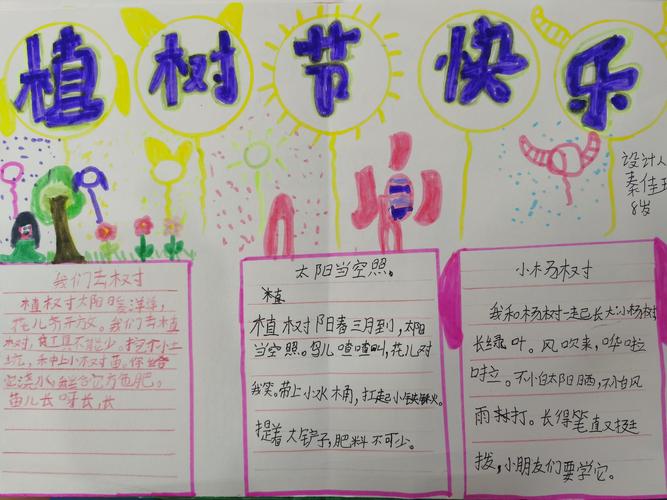 植树节快乐
设计人
秦佳
8岁
我们去树
植树太阳日
花儿齐开放。我们去植
树,工具不能少。挖个小土
坑,种上小树苗。你给
它浇水,我给它方面肥。
苗儿长呀长,长
太阳当空照。
植
植树阳春三月到,太阳
当空照。鸟儿喳喳叫,花儿对
我笑。带上小水桶,扛起小铁锹。
提着大铲子,肥料不可少。
小杨树
我和杨树一起长大,小杨树
长绿叶。风吹来,哗啦
啦。不怕太阳晒,不怕风
雨打。长得笔直又挺
拨,小朋友们要学它。